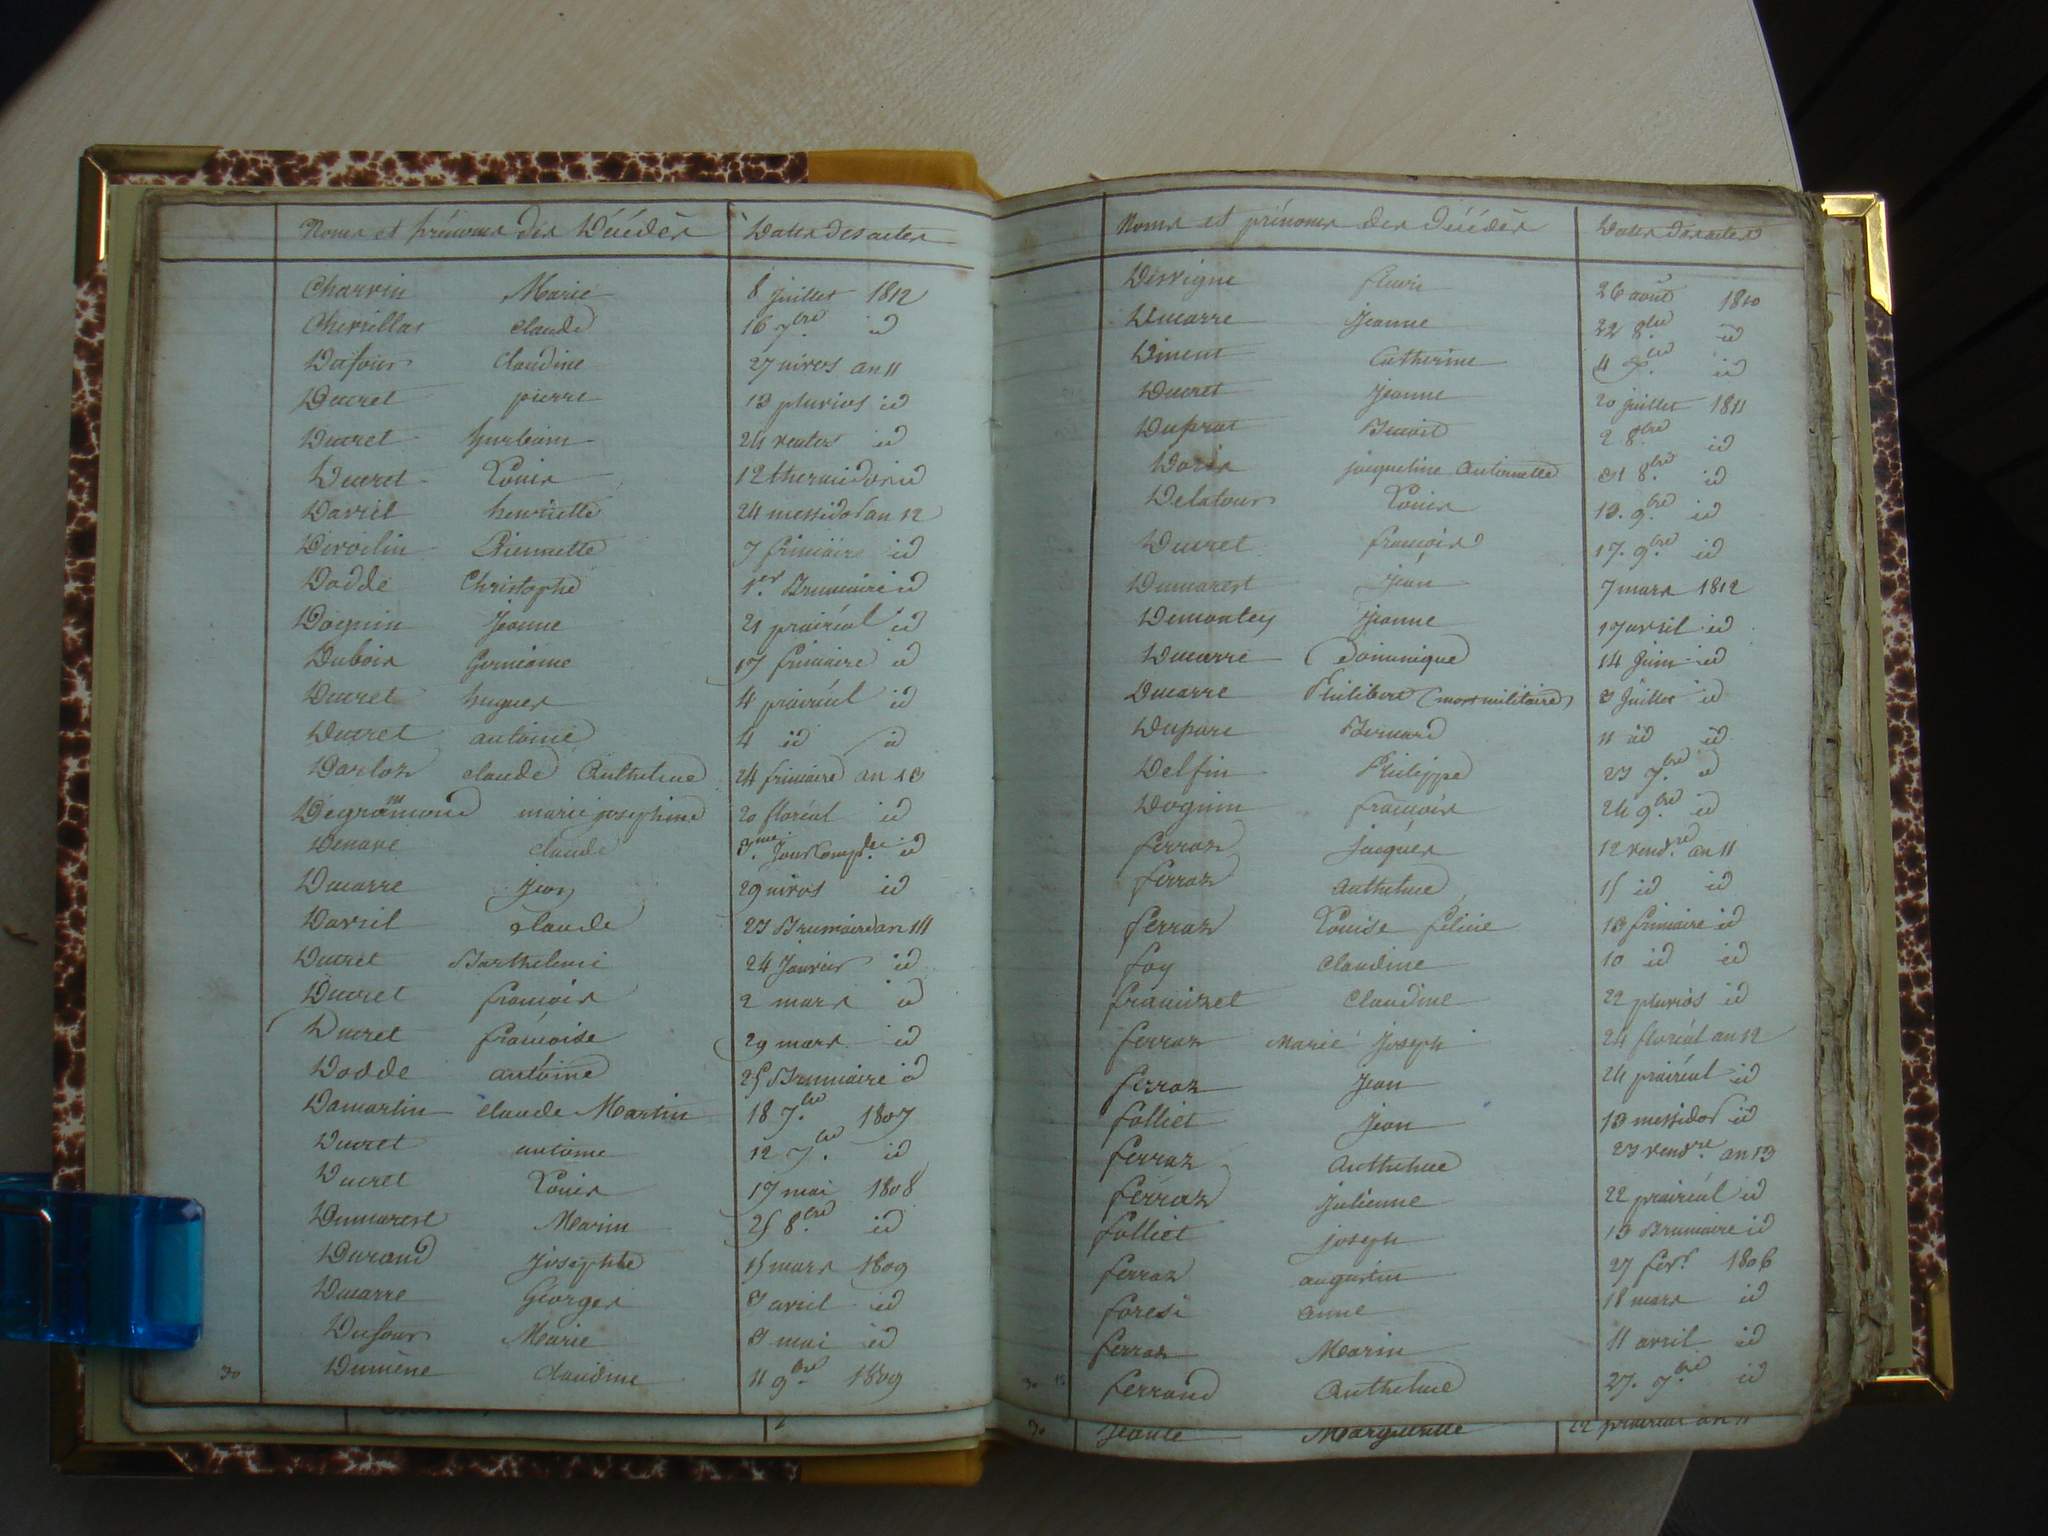 Noms et prénoms des Décédés Dates des actes
Charvin Marie 8 Juillet 1812
Claude 16 7.bre id
Dufour Claudine 27 nivos an 11
Ducret pierre 13 pluvios id
Ducret 24 ventos id
Ducret Louis 12 thermidor id
Davril henriette 24 messidor an 12
Pierrette 7 frimaire id
Dodde Christophe 1.er Brumaire id
Dognin Jeanne 21 prairéal id
Dubois 17 frimaire id
Ducret hugues 4 prairéal id
Ducret antoine 4 id id
Darloz claude Anthelme 24 frimaire an 13
Degrammond marie josephine 20 floréal id
Denave claude 3.me Jour Comp.re id
Ducarre Jean 29 nivos id
Davril claude 23 Brumaire an 14
Ducret Barthelemi 24 Janvier id
Ducret francois 2 mars id
Ducret francoise 29 mars id
Dodde antoine 25 Brumaire id
Damartin claude Martin 18 7.bre 1807
Ducret antoine 12 7.bre id
Ducret Louis 17 mai 1808
Dumarest Marin 25 8.bre id
Durand Josephte 15 mars 1809
Ducarre Georges 3 avril id
Dufour Marie 3 mai id
30 Dumène Claudine 11 9.bre 1809
Noms et prénoms des Décédés Dates des actes
Desvigne fleuri 26 août 1810
Ducarre Jeanne 22 8.bre id
Catherine id
Ducret Jeanne 20 juillet 1811
Duprat Benoit 2 8.bre id
Doris jacqueline Antoinette 31 8.bre id
Delatour Louis 13. 9.bre id
Ducret francois 17. 9.bre id
Dumarest Jean 7 mars 1812
Demontey Jeanne 17 avril id
Ducarre Dominique 14 Juin id
Ducarre Philibert (mort militaire) 3 Juillet id
Duparc Bernard 11 id id
Delfin Philippe 23 7.bre id
Dognin francois 24 9.bre id
ferraz Jacques 12 vend.re an 11
ferraz Anthelme 15 id id
ferraz Louise féline 13 frimaire id
foy Claudine 10 id id
Claudine 22 pluvios id
ferraz Marie Joseph 24 floréal an 12
ferraz Jean 24 prairéal id
folliet Jean 13 messidor id
ferraz Anthelme 23 vend.re an 13
ferraz Julienne 22 prairéal id
folliet joseph 13 Brumaire id
ferraz augustin 27 fev.r 1806
foresi anne 18 mars id
ferraz Marin 11 avril id
30 ferrand Anthelme 27. 7.bre id
30 Marguerite 22 prairéal an 11